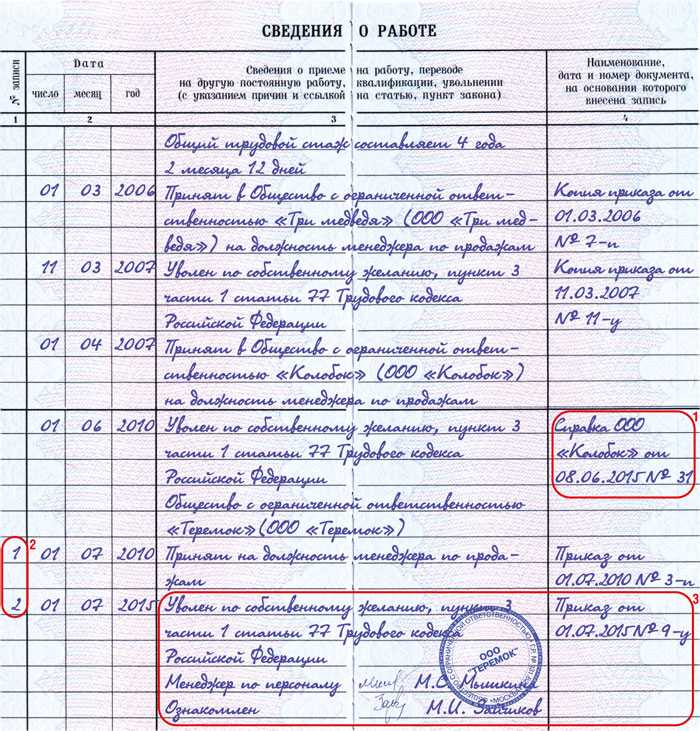 СВЕДЕНИЯ О РАБОТЕ
№ записи
Дата
число месяц год
Сведения о приеме на работу, переводе
на другую постоянную работу, квалификации, увольнении
(с указанием причин и ссылкой на статью, пункт закона)
Наименование,
дата и номер документа,
на основании которого
внесена запись
1 2 3 4
Общий трудовой стаж составляет 4 года
2 месяца 12 дней
01 03 2006 Принят в Общество с ограниченной ответ- Копия приказа от
ственностью «Три медведя» (ООО «Три мед- 01.03.2006
ведя») на должность менеджера по продажам № 7-п
11 03 2007 Уволен по собственному желанию, пункт 3 Копия приказа от
части 1 статьи 77 Трудового кодекса 11.03.2007
Российской Федерации № 11-у
01 04 2007 Принят в Общество с ограниченной ответ-
ственностью «Колобок» (ООО «Колобок»)
на должность менеджера по продажам
1
01 06 2010 Уволен по собственному желанию, пункт 3 Справка ООО
части 1 статьи 77 Трудового кодекса «Колобок» от
Российской Федерации 08.06.2015 № 31
Общество с ограниченной ответственностью
«Теремок» (ООО «Теремок»)
2
1 01 07 2010 Принят на должность менеджера по прода- Приказ от
жам 01.07.2010 № 3-п
3
2 01 07 2015 Уволен по собственному желанию, пункт 3 Приказ от
части 1 статьи 77 Трудового кодекса 01.07.2015 № 9-у
Российской Федерации
Менеджер по персоналу М.О. Мышкина
Ознакомлен М.И. Зайчиков
ООО
"ТЕРЕМОК"